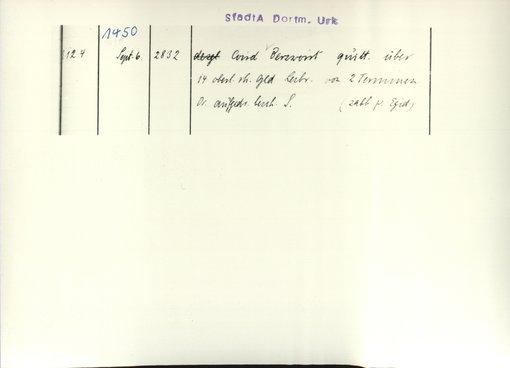 StadtA Dortm. Urk
1450
124 Sept. 6. 2832 dergl Conrd Berswort quitt. über
14 oberl. rh. Gld von 2 Terminen
Or. aufgedr. besch. S. (